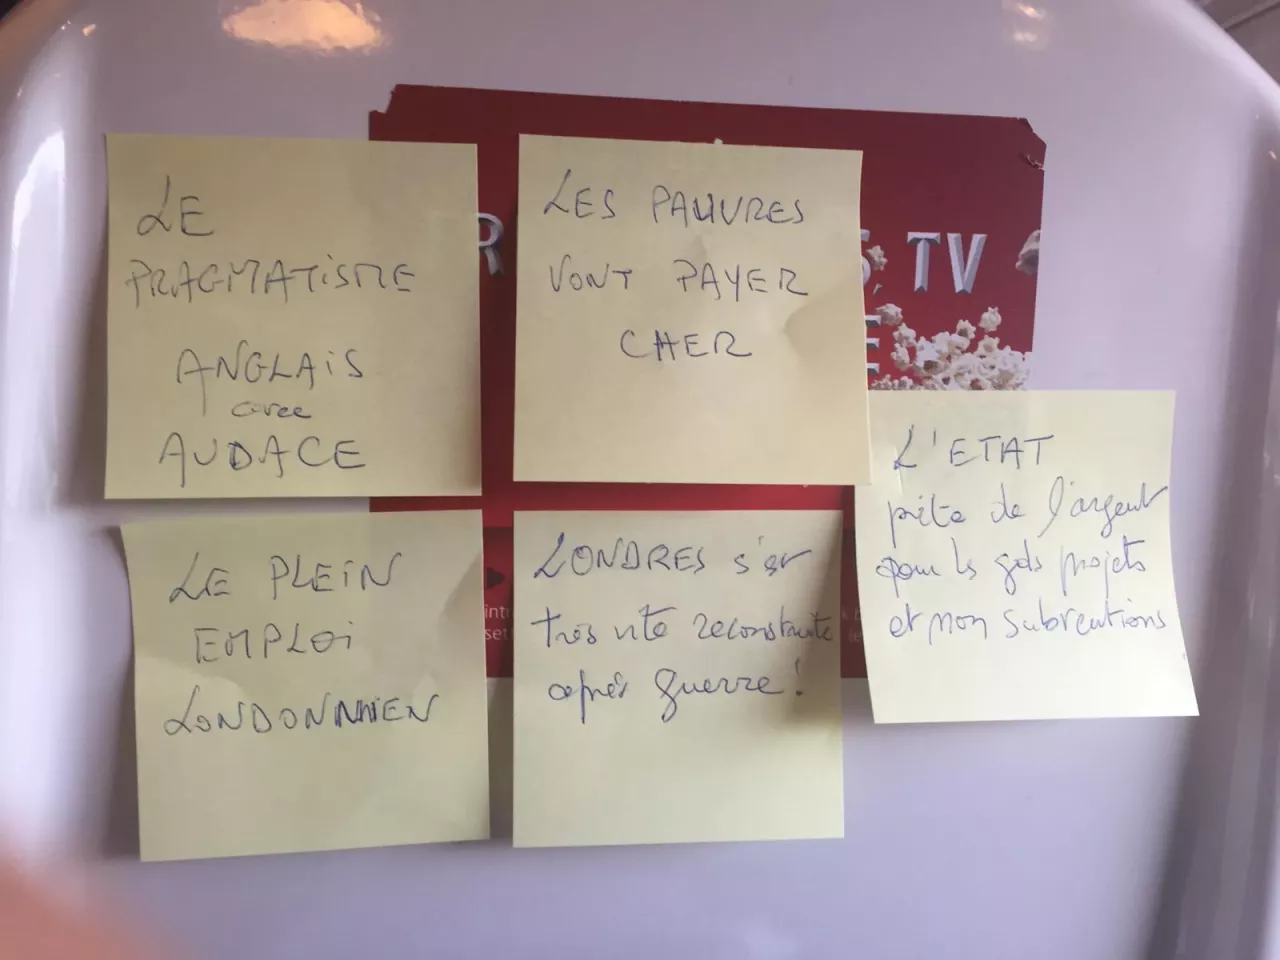 LE
PRAGMATISME
ANGLAIS
avec
AUDACE
LES PAUVRES
VONT PAYER
CHER
L'ETAT
prête de l'argent
pour ls gds projets
et non subventions
LE PLEIN
EMPLOI
LONDONNIEN
LONDRES s'est
très vite reconstruite
après guerre!
R
TV
E